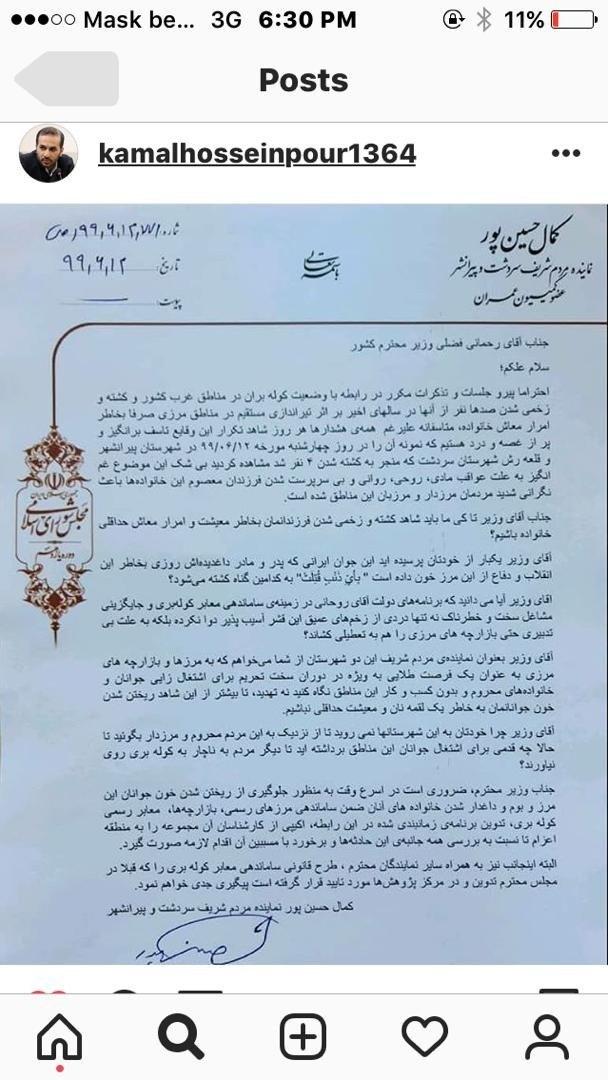 Mask be... 3G 6:30 PM 11%
Posts
kamalhosseinpour1364
کمال حسین پور
نماینده مردم شریف سردشت و پیرانشهر
عضو کمیسیون عمران
باسمه تعالی
شماره:
تاریخ: ۹۹,۶,۱۲
پیوست:
جمهوری اسلامی ایران
مجلس شورای اسلامی
دوره یازدهم
جناب آقای رحمانی فضلی وزیر محترم کشور
سلام علکم؛
احتراما پیرو جلسات و تذکرات مکرر در رابطه با وضعیت کوله بران در مناطق غرب کشور و کشته و
زخمی شدن صدها نفر از آنها در سالهای اخیر بر اثر تیراندازی مستقیم در مناطق مرزی صرفا بخاطر
امرار معاش خانواده، متاسفانه علیرغم همه‌ی هشدارها هر روز شاهد تکرار این وقایع تاسف برانگیز و
پر از غصه و درد هستیم که نمونه آن را در روز چهارشنبه مورخه ۹۹/۰۶/۱۲ در شهرستان پیرانشهر
و قلعه رش شهرستان سردشت که منجر به کشته شدن ۴ نفر شد مشاهده کردید بی شک این موضوع غم
انگیز به علت عواقب مادی، روحی، روانی و بی سرپرست شدن فرزندان معصوم این خانواده‌ها باعث
نگرانی شدید مردمان مرزدار و مرزبان این مناطق شده است.
جناب آقای وزیر تا کی ما باید شاهد کشته و زخمی شدن فرزندانمان بخاطر معیشت و امرار معاش حداقلی
خانواده باشیم؟
آقای وزیر یکبار از خودتان پرسیده اید این جوان ایرانی که پدر و مادر داغدیده‌اش روزی بخاطر این
انقلاب و دفاع از این مرز خون داده است " بِأَيِّ ذَنْبٍ قُتِلَتْ" به کدامین گناه کشته می‌شود؟
اقای وزیر آیا می دانید که برنامه‌های دولت آقای روحانی در زمینه‌ی ساماندهی معابر کوله‌بری و جایگزینی
مشاغل سخت و خطرناک نه تنها دردی از زخم‌های عمیق این قشر آسیب پذیر دوا نکرده بلکه به علت بی
تدبیری حتی بازارچه های مرزی را هم به تعطیلی کشاند؟
آقای وزیر بعنوان نماینده‌ی مردم شریف این دو شهرستان از شما می‌خواهم که به مرزها و بازارچه های
مرزی به عنوان یک فرصت طلایی به ویژه در دوران سخت تحریم برای اشتغال زایی جوانان و
خانواده‌های محروم و بدون کسب و کار این مناطق نگاه کنید نه تهدید، تا بیشتر از این شاهد ریختن شدن
خون جوانانمان به خاطر یک لقمه نان و معیشت حداقلی نباشیم.
آقای وزیر چرا خودتان به این شهرستانها نمی روید تا از نزدیک به این مردم محروم و مرزدار بگوئید تا
حالا چه قدمی برای اشتغال جوانان این مناطق برداشته اید تا دیگر مردم به ناچار به کوله بری روی
نیاورند؟
جناب وزیر محترم، ضروری است در اسرع وقت به منظور جلوگیری از ریختن شدن خون جوانان این
مرز و بوم و داغدار شدن خانواده های آنان ضمن ساماندهی مرزهای رسمی، بازارچه‌ها، معابر رسمی
کوله بری، تدوین برنامه‌ی زمانبندی شده در این رابطه، اکیپی از کارشناسان آن مجموعه را به منطقه
اعزام تا نسبت به بررسی همه جانبه‌ی این حادثه‌ها و برخورد با مسببین آن اقدام لازمه صورت گیرد.
البته اینجانب نیز به همراه سایر نمایندگان محترم ، طرح قانونی ساماندهی معابر کوله بری را که قبلا در
مجلس محترم تدوین و در مرکز پژوهش‌ها مورد تایید قرار گرفته است پیگیری جدی خواهم نمود.
کمال حسین پور نماینده مردم شریف سردشت و پیرانشهر